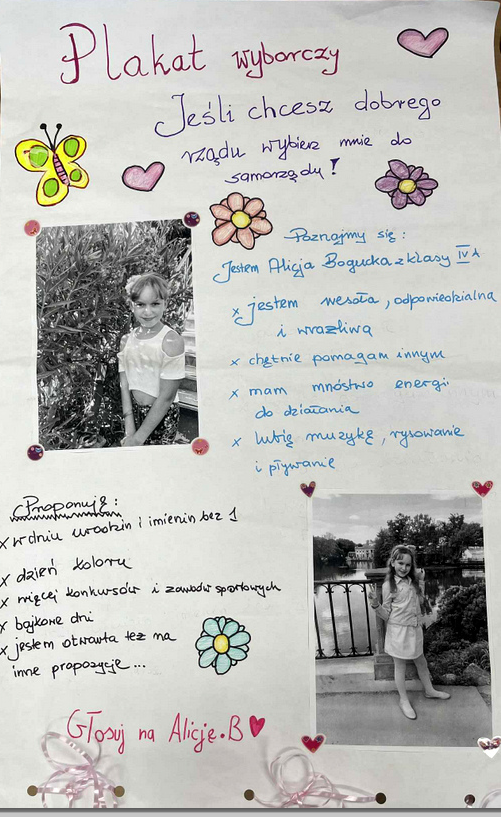 Plakat wyborczy
Jeśli chcesz dobrego
rządu wybierz mnie do
samorządu!
Poznajmy się:
Jestem Alicja Bogucka z klasy IV A
x jestem wesoła, odpowiedzialna
i wrażliwa
x chętnie pomagam innym
x mam mnóstwo energi
do działania
x lubię muzykę, rysowanie
i pływanie
Proponuję:
x w dniu urodzin i imienin bez 1
x dzień koloru
x więcej konkursów i zawodów sportowych
x bajkowe dni
x jestem otwarta też na
inne propozycje ...
Głosuj na Alicję.B